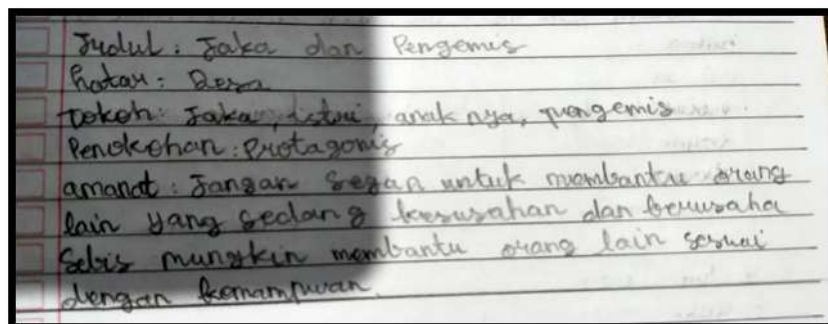 Judul : Jaka dan Pengemis
Latar : Desa
Tokoh : Jaka, istri, anak nya, pengemis
Penokohan : Protagonis
amanat : Jangan segan untuk membantu orang
lain yang sedang kesusahan dan berusaha
sebis mungkin membantu orang lain sesuai
dengan kemampuan.